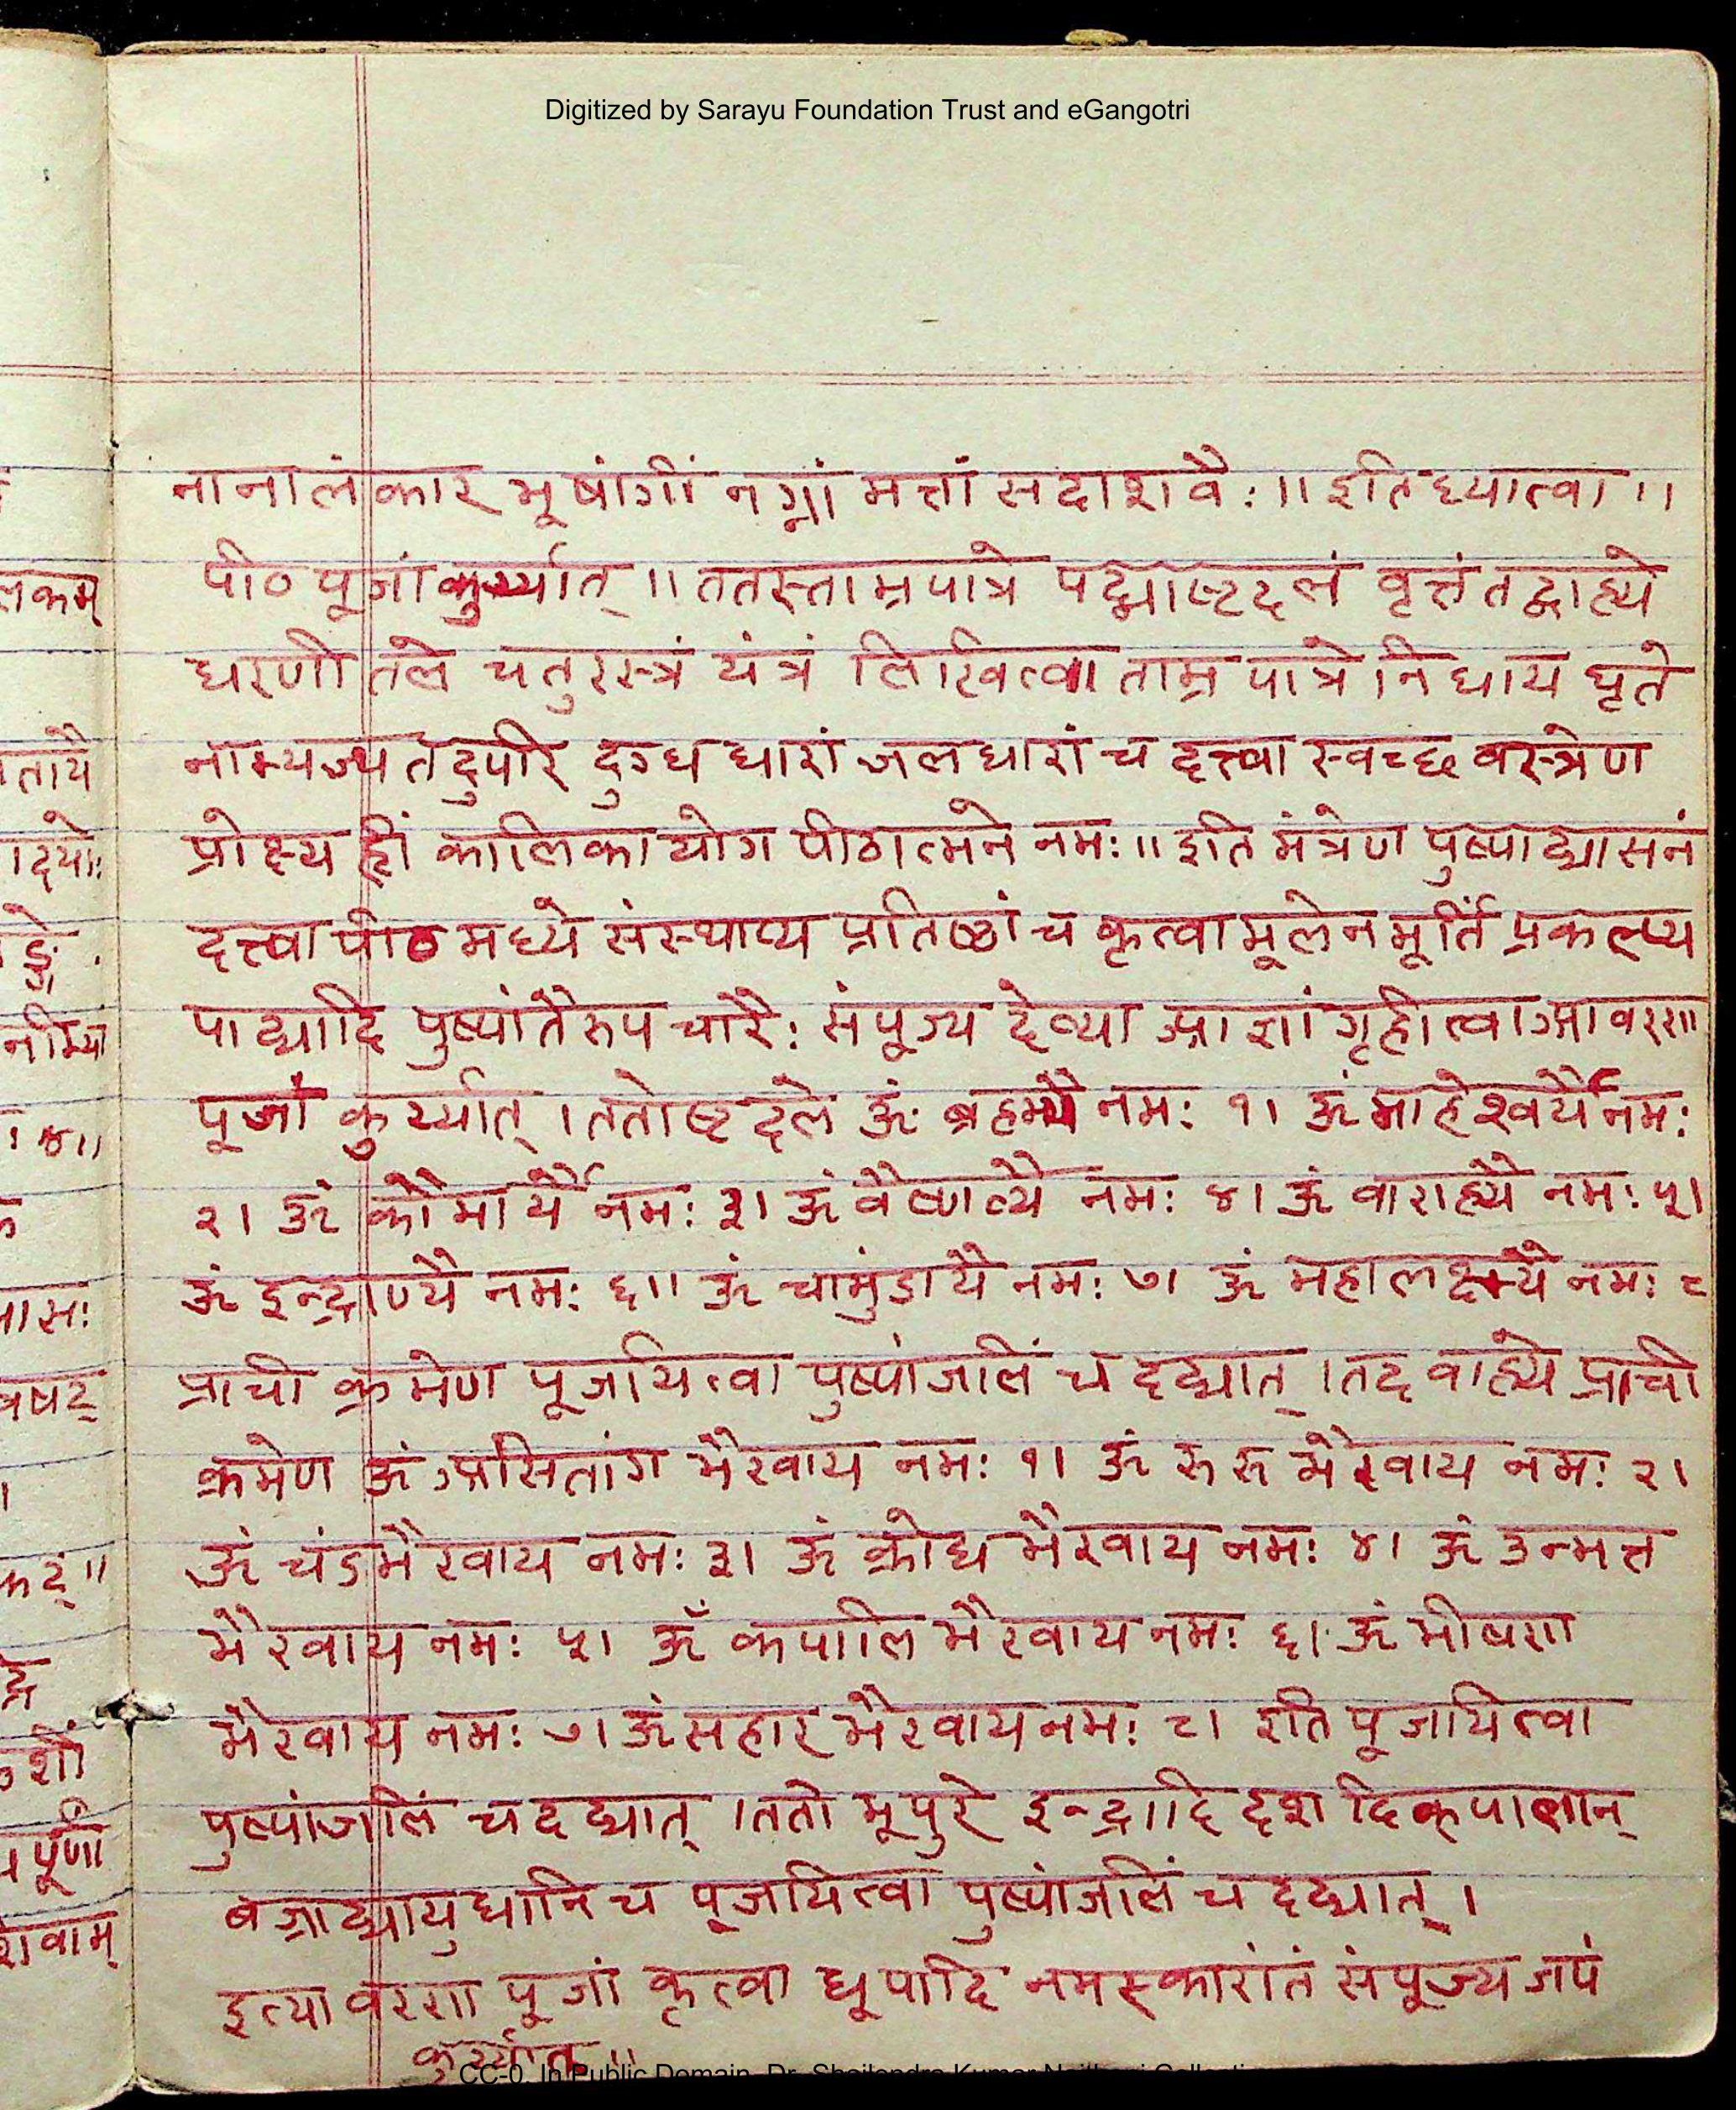 Digitized by Sarayu Foundation Trust and eGangotri
नानालंकार भूषांगीं नग्नां मत्तां सदाशवैः ॥ इतिध्यात्वा ॥
पीठ पूजां कुर्य्यात् ॥ ततस्ताम्रपात्रे पद्माष्टदलं वृत्तं तद्बाह्ये
धरणीतले चतुरस्त्रं यंत्रं लिखित्वा ताम्र पात्रे निधाय घृते
नाभ्यज्य तदुपरि दुग्ध धारां जलधारां च दत्त्वा स्वच्छ वस्त्रेण
प्रोक्ष्य ह्रीं कालिका योग पीठात्मने नमः ॥ इति मंत्रेण पुष्पाद्यासनं
दत्त्वा पीठ मध्ये संस्थाप्य प्रतिष्ठां च कृत्वा मूलेन मूर्तिं प्रकल्प्य
पाद्यादि पुष्पांतैरुप चारैः संपूज्य देव्या आज्ञां गृहीत्वा आवरण
पूजां कुर्य्यात् । ततोष्टदले ॐ ब्रह्म्यै नमः १। ॐ माहेश्वर्यै नमः
२। ॐ कौमार्यै नमः ३। ॐ वैष्णव्यै नमः ४। ॐ वाराह्यै नमः ५।
ॐ इन्द्राण्यै नमः ६॥ ॐ चामुंडायै नमः ७। ॐ महालक्ष्म्यै नमः ८
प्राची क्रमेण पूजयित्वा पुष्पांजलिं च दद्यात् । तद वाह्ये प्राची
क्रमेण ॐ असितांग भैरवाय नमः १। ॐ रुरु भैरवाय नमः २।
ॐ चंडभैरवाय नमः ३। ॐ क्रोध भैरवाय नमः ४। ॐ उन्मत्त
भैरवाय नमः ५। ॐ कपालि भैरवाय नमः ६। ॐ भीषण
भैरवाय नमः ७। ॐ सहार भैरवाय नमः ८। इति पूजयित्वा
पुष्पांजलिं च दद्यात् । ततो भूपुरे इन्द्रादि दश दिक्पालान्
बज्राद्यायुधानि च पूजयित्वा पुष्पांजलिं च दद्यात् ।
इत्या वरण पूजां कृत्वा धूपादि नमस्कारांतं संपूज्य जपं
कुर्य्यात् ॥
CC-0. In Public Domain. Dr. Shailendra Kumar